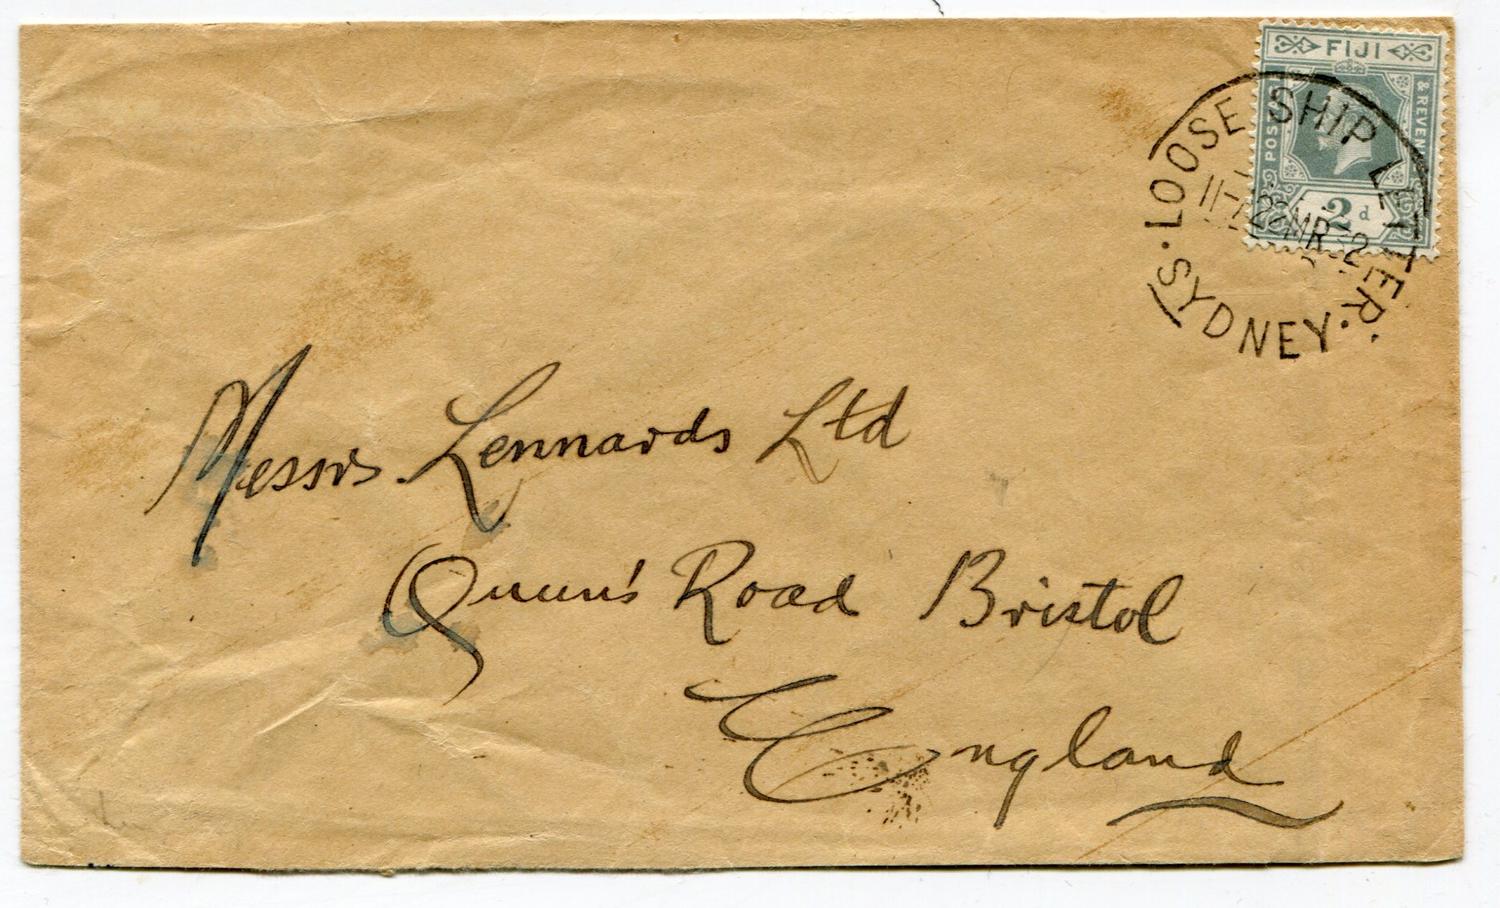 FIJI
POSTAGE & REVENUE
2d
LOOSE SHIP LETTER
22 MR 2
SYDNEY
Messrs. Lennards Ltd
Queen's Road Bristol
England